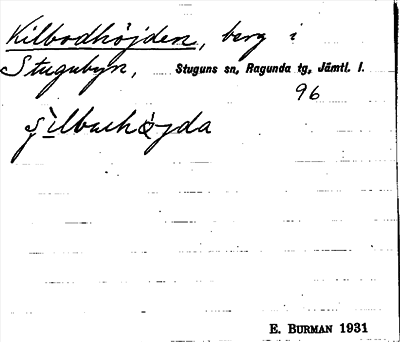 Kilbodhöjden, berg i
Stugubyn, Stuguns sn, Ragunda tg, Jämtl. l.
96
E. BURMAN 1931